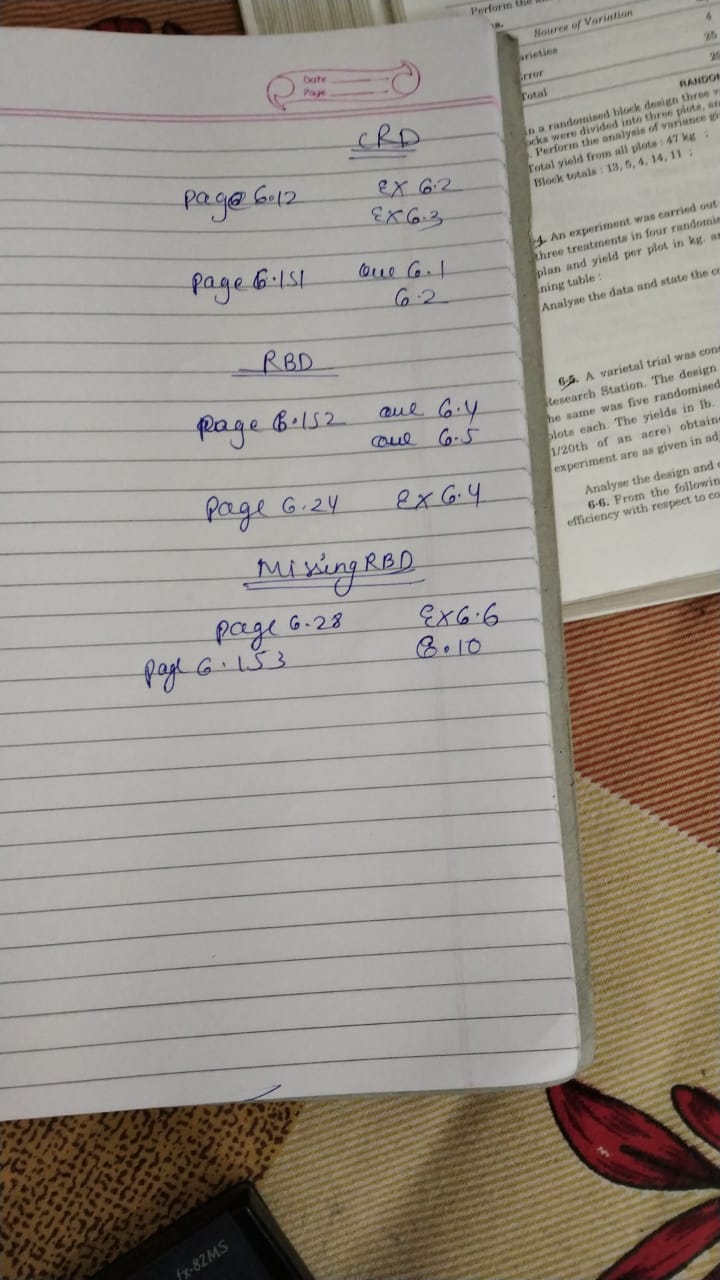 Date
Page
CRD
page 6.12 EX 6.2
EX 6.3
page 6.151 que 6.1
6.2
RBD
page 6.152 que 6.4
que 6.5
page 6.24 EX 6.4
Missing RBD
page 6.28 EX 6.6
page 6.153 6.10
Perform the
Source of Variation
4
arieties
25
rror
Total
RANDO
n a randomised block design three
cks were divided into three plots,
. Perform the analysis of variance
Total yield from all plots : 47 kg ;
Block totals : 13, 5, 4, 14, 11 ;
4. An experiment was carried out
three treatments in four randomi
plan and yield per plot in kg.
ning table :
Analyse the data and state the
6·5. A varietal trial was con
Research Station. The design
he same was five randomised
plots each. The yields in lb.
1/20th of an acre) obtain
experiment are as given in
Analyse the design and
6·6. From the followin
efficiency with respect to
fx-82MS